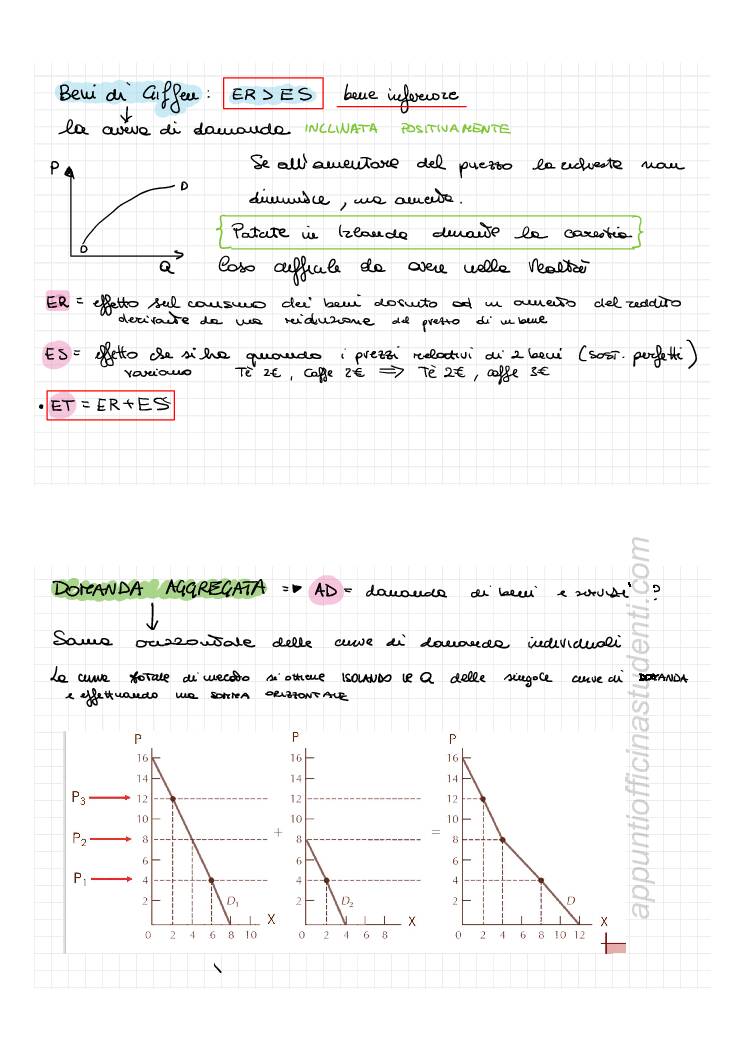 Beni di Giffen : ER > ES bene inferiore
la curva di domanda INCLINATA POSITIVAMENTE
P
D
D
Q
Se all'aumentare del prezzo la richiesta non
diminuisce, ma aumenta.
Patate in Irlanda durante la carestia
Caso difficile da avere nella realtà
ER = effetto sul consumo dei beni dovuto ad un aumento del reddito
derivante da una riduzione del prezzo di un bene
ES = effetto che si ha quando i prezzi relativi di 2 beni (sost. perfetti)
variano Tè 2€, Caffe 2€ ⇒ Tè 2€, caffe 3€
• ET = ER + ES
DOMANDA AGGREGATA => AD = domanda di beni e servizi ?
Somma orizzontale delle curve di domanda individuali
La curva totale di mercato si ottiene ISOLANDO le Q delle singole curve di DOMANDA
e effettuando una SOMMA ORIZZONTALE
P
16
14
P3 12
10
P2 8
6
P1 4
2
D1
X
0 2 4 6 8 10
+
P
16
14
12
10
8
6
4
2
D2
X
0 2 4 6 8
=
P
16
14
12
10
8
6
4
2
D
X
0 2 4 6 8 10 12
appuntiofficinastudenti.com